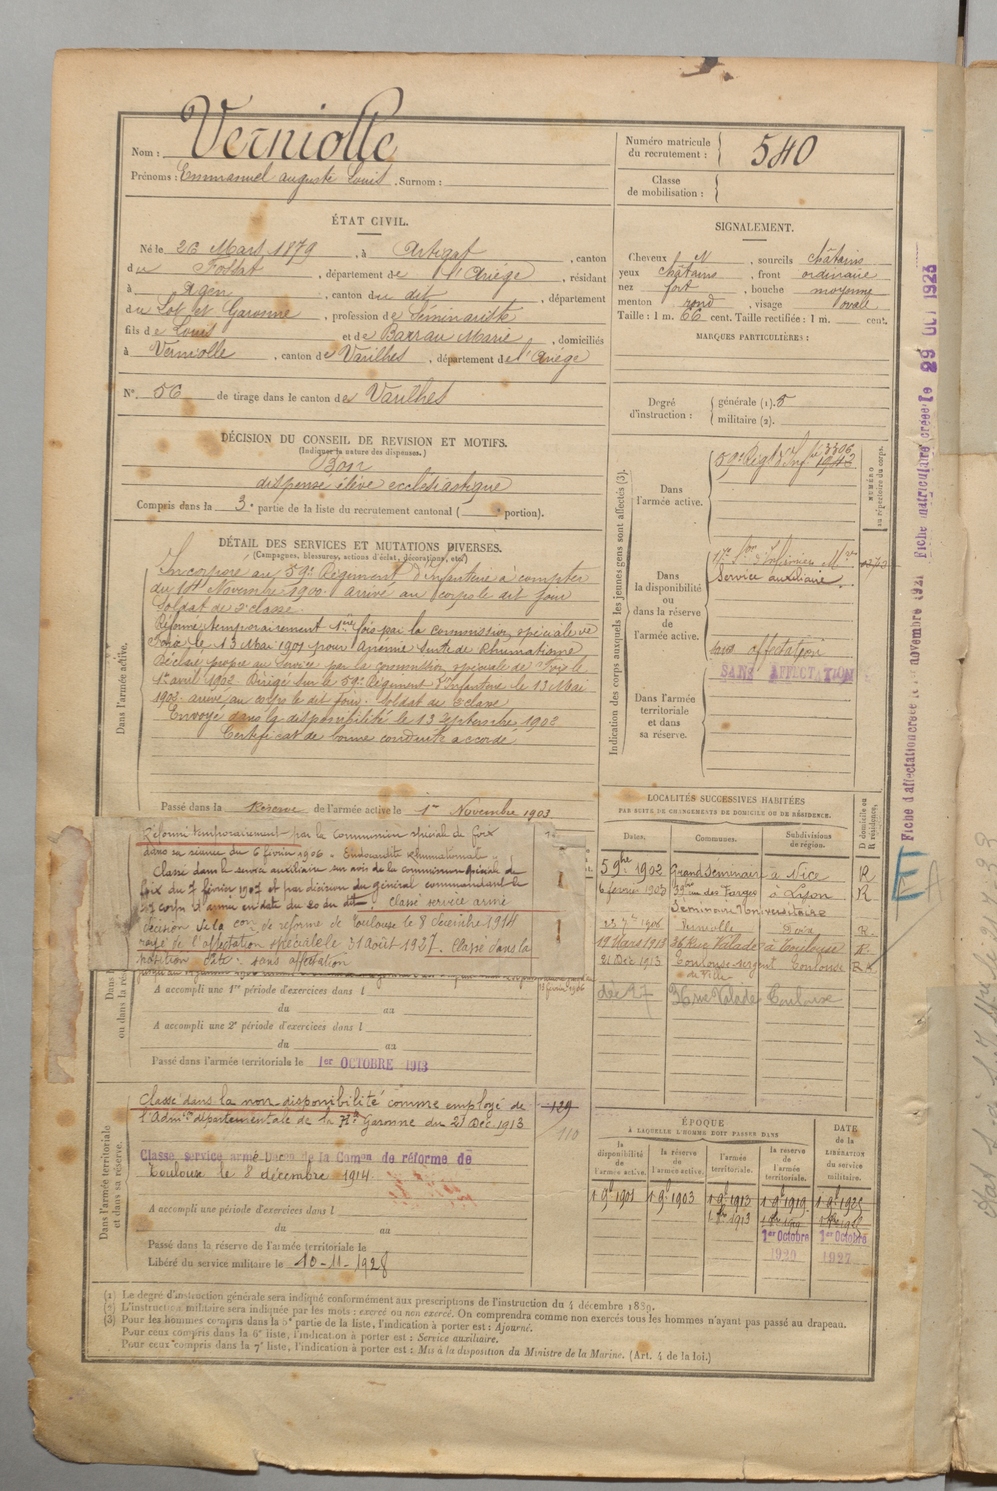 Nom : Verniolle
Prénoms : Emmanuel auguste Louis . Surnom :
Numéro matricule du recrutement : 540
Classe de mobilisation :
ÉTAT CIVIL.
Né le 26 Mars 1879 , à Artigat , canton
du Fossat , département de l'Ariège , résidant
à Agen , canton du dit , département
du Lot et Garonne , profession de Séminariste
fils de Louis et de Barrau Marie , domiciliés
à Verniolle , canton de Varilhes , département de l'Ariège
N° 56 de tirage dans le canton de Varilhes
SIGNALEMENT.
Cheveux N , sourcils châtains
yeux châtains , front ordinaire
nez fort , bouche moyenne
menton rond , visage ovale
Taille : 1 m. 66 cent. Taille rectifiée : 1 m. cent.
MARQUES PARTICULIÈRES :
Degré d'instruction : générale (1). 5
militaire (2).
DÉCISION DU CONSEIL DE REVISION ET MOTIFS.
(Indiquer la nature des dispenses.)
Bon
dispensé élève ecclésiastique
Compris dans la 3e partie de la liste du recrutement cantonal ( portion).
DÉTAIL DES SERVICES ET MUTATIONS DIVERSES.
(Campagnes, blessures, actions d'éclat, décorations, etc.)
Dans l'armée active.
Incorporé au 59e Régiment d'Infanterie à compter
du 14 Novembre 1900. arrivé au corps le dit jour
Soldat de 2e classe.
Réformé temporairement 1ère fois par la commission spéciale de
Foix le 13 Mai 1901 pour Anémie suite de Rhumatisme
Déclaré propre au service par la commission spéciale de Foix le
1er avril 1902 Dirigé sur le 59e Régiment d'Infanterie le 13 Mai
1902 arrivé au corps le dit jour. Soldat de 2e classe
Envoyé dans la disponibilité le 13 septembre 1902
Certificat de bonne conduite accordé
Passé dans la Réserve de l'armée active le 1er Novembre 1903
Réformé temporairement par la commission spéciale de foix
dans sa séance du 6 février 1906. Endocardite Rhumatismale.
Classé dans le service auxiliaire sur avis de la commission spéciale de
foix du 7 février 1907 et par décision du général commandant le
17e corps d'armée en date du 20 du dit. Classé service armé
décision de la con de réforme de Toulouse le 8 décembre 1914
rayé de l'affectation spéciale le 31 août 1927. Classé dans la
position dite : sans affectation
A accompli une 1re période d'exercices dans l
du au
A accompli une 2e période d'exercices dans l
du au
Passé dans l'armée territoriale le 1er OCTOBRE 1913
Dans l'armée territoriale et dans sa réserve.
Classé dans la non disponibilité comme employé de
l'Admon départementale de la Hte Garonne du 21 Déc. 1913
129
110
Classé service armé Décon de la Comon de réforme de
Toulouse le 8 décembre 1914.
A accompli une période d'exercices dans l
du au
Passé dans la réserve de l'armée territoriale le
Libéré du service militaire le 10-11-1928
Indication des corps auxquels les jeunes gens sont affectés (3).
NUMÉRO au répertoire du corps.
Dans l'armée active.
59e Régt d'Inf.
3306
Dans la disponibilité ou dans la réserve de l'armée active.
Service auxiliaire
sans affectation
SANS AFFECTATION
Dans l'armée territoriale et dans sa réserve.
LOCALITÉS SUCCESSIVES HABITÉES
PAR SUITE DE CHANGEMENTS DE DOMICILE OU DE RÉSIDENCE.
Dates. Communes. Subdivisions de région. D domicile ou R résidence.
5 9bre 1902 Grand Séminaire à Nice R
6 février 1903 rue des Farges à Lyon R
Séminaire Universitaire
1906 Verniolle Foix R.
19 Mars 1913 36 Rue Valade à Toulouse R.
21 Déc 1913 Toulouse Sergent de Ville Toulouse R
36 rue Valade Toulouse
ÉPOQUE
À LAQUELLE L'HOMME DOIT PASSER DANS
la disponibilité de l'armée active. la réserve de l'armée active. l'armée territoriale. la réserve de l'armée territoriale. DATE de la LIBÉRATION du service militaire.
1 9b 1901 1 9b 1903 1 9b 1913 1 9b 1919 1 9b 1925
1er Octobre 1920 1er Octobre 1927
(1) Le degré d'instruction générale sera indiqué conformément aux prescriptions de l'instruction du 4 décembre 1889.
(2) L'instruction militaire sera indiquée par les mots : exercé ou non exercé. On comprendra comme non exercés tous les hommes n'ayant pas passé au drapeau.
(3) Pour les hommes compris dans la 5e partie de la liste, l'indication à porter est : Ajourné.
Pour ceux compris dans la 6e liste, l'indication à porter est : Service auxiliaire.
Pour ceux compris dans la 7e liste, l'indication à porter est : Mis à la disposition du Ministre de la Marine. (Art. 4 de la loi.)
Fiche d'affectation créée le novembre 1921 Fiche matriculaire créée le 29 OCT 1923